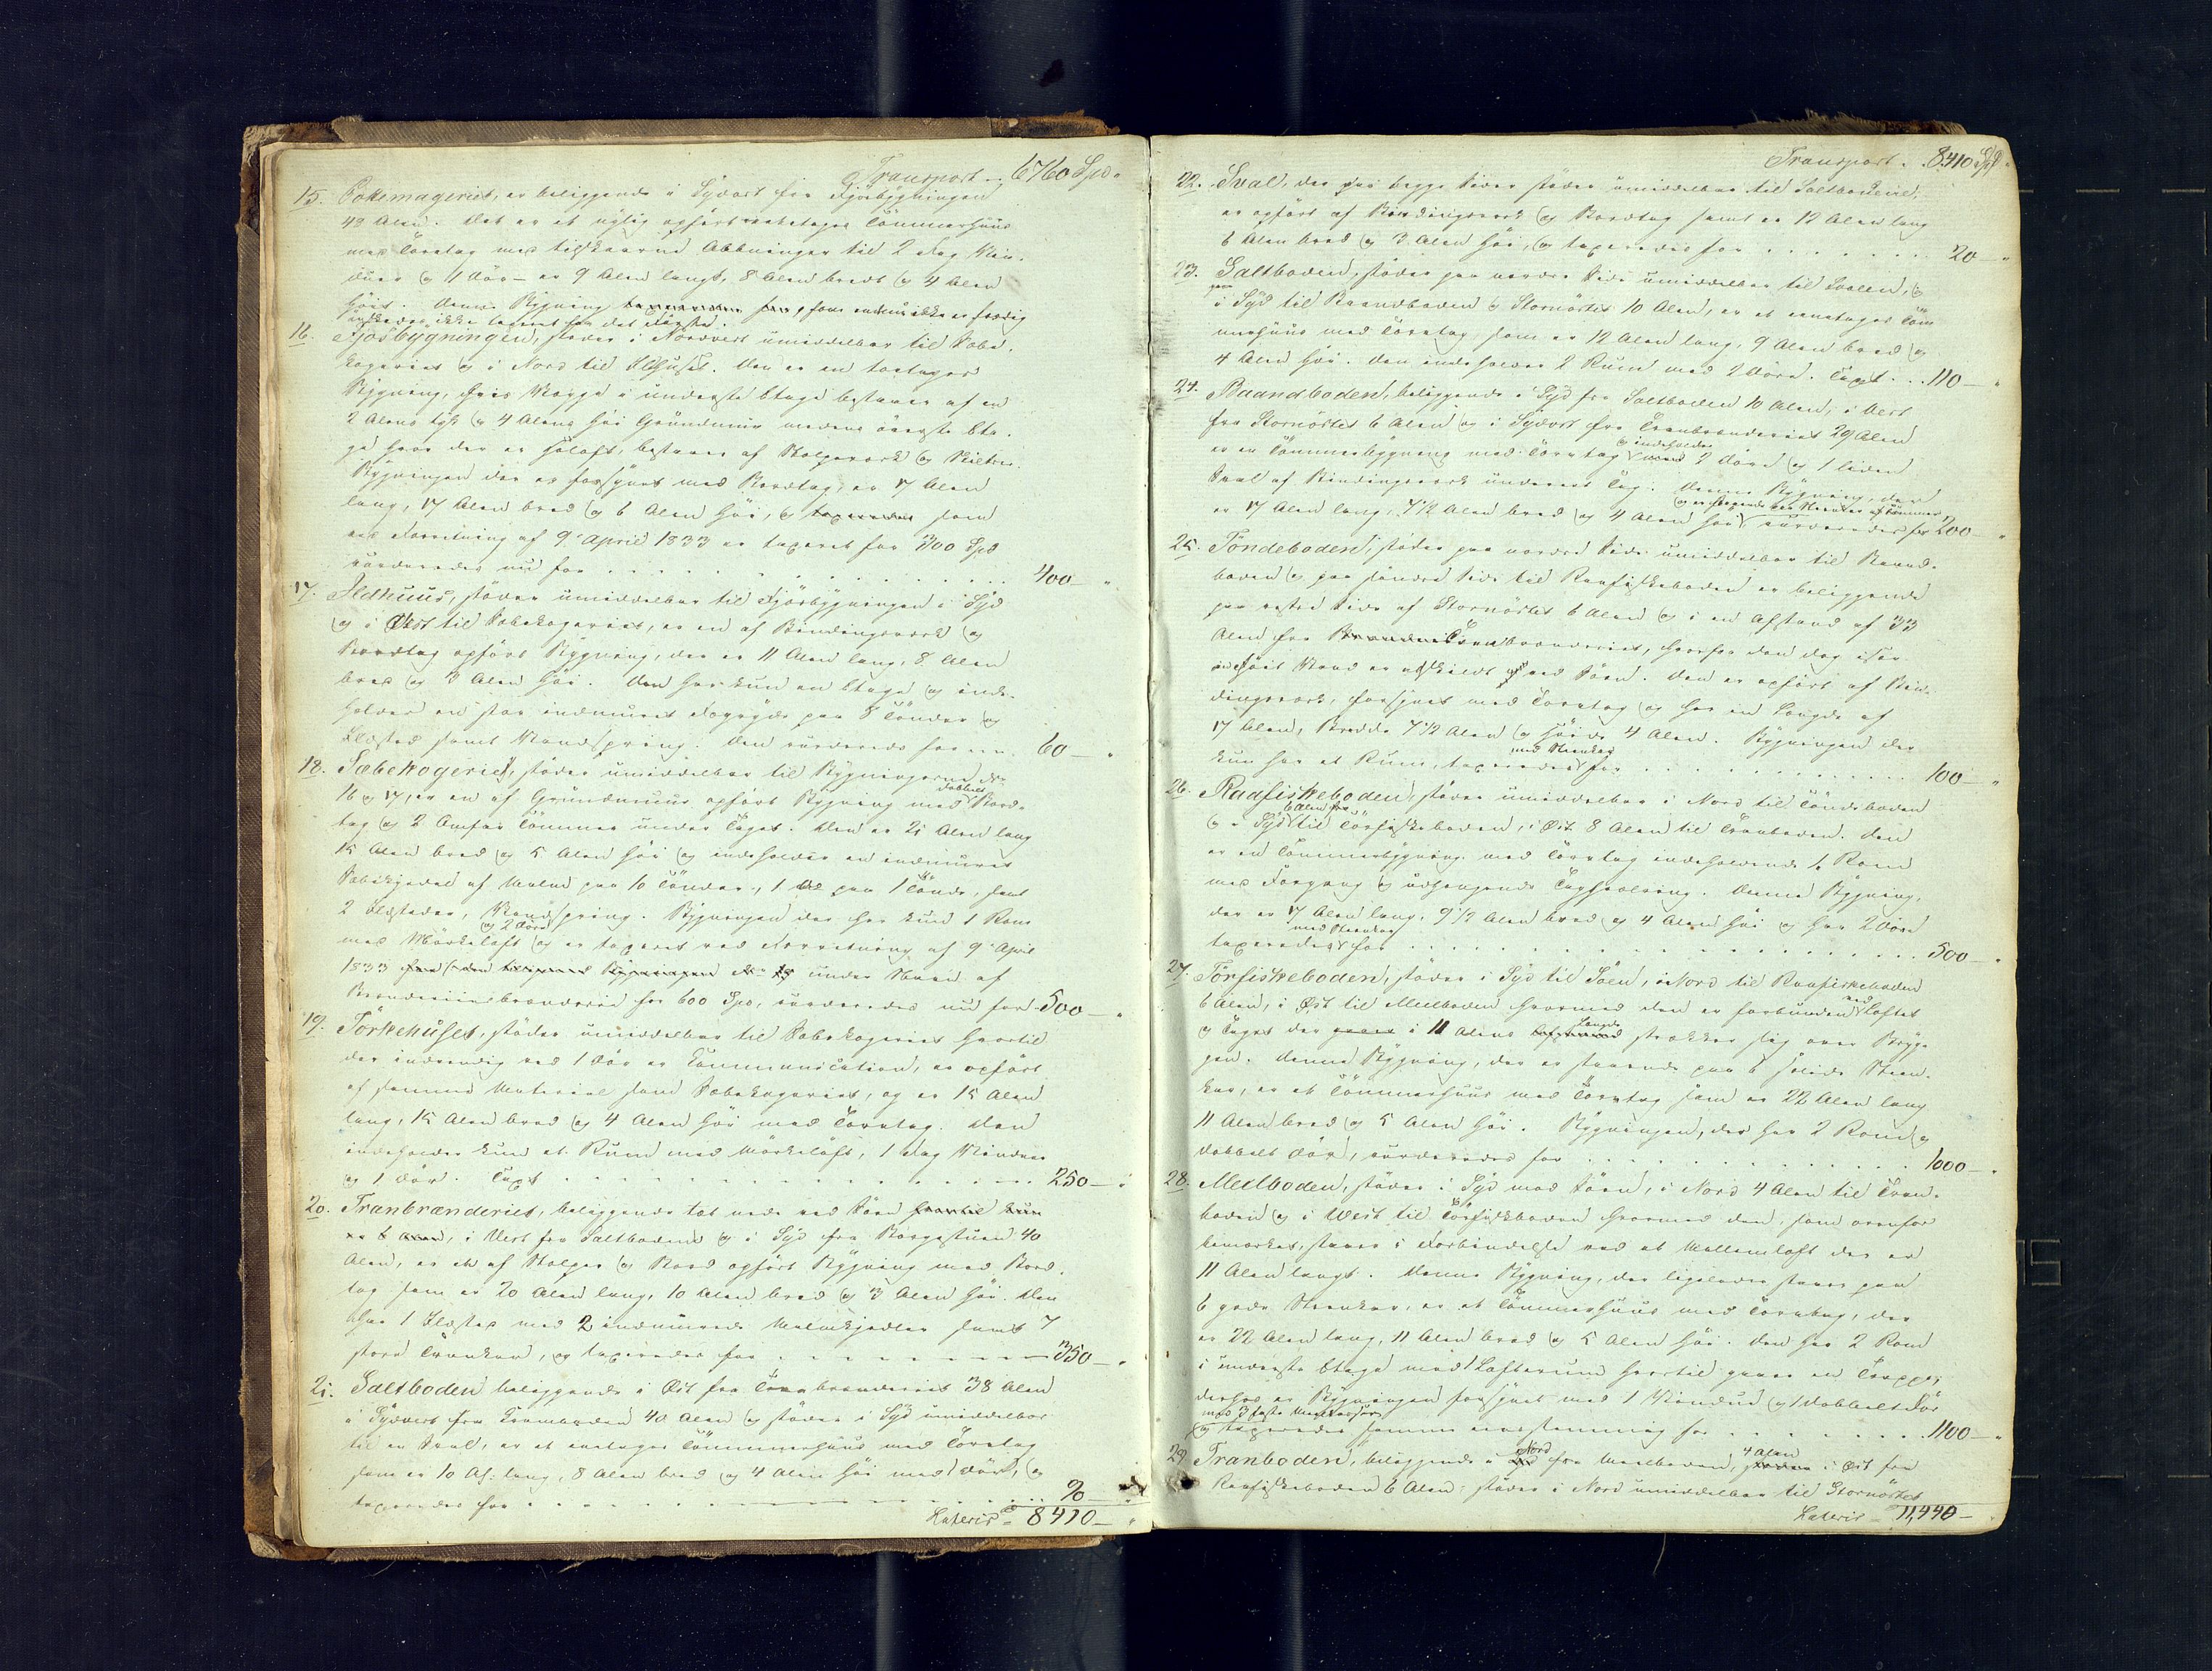 Transport — 6760 Spd
15. Pokemageriet, er beliggende i Sydost fra Fjösbygningen
42 Alen. Det er et nylig opført eenetages Tömmerhuus
med Torvtag med tilskaarne Aabninger til 2 Fag Vin-
duer og 1 Dör — er 9 Alen langt, 8 Alen bredt og 4 Alen
höit. Denne Bygning taxeredes for som endnu ikke er færdig
önskedes ikke taxeret for det Første.
16. Fjösbygningen, stöder i Nordvest umiddelbar til Sæbe-
kogeriet og i Nord til Ildhuset. Den er en toetages
Bygning, hvis Vægge i underste Etage bestaaer af en
2 Alens tyk og 4 Alens höi Grundmuur medens överste Eta-
ge hvor der er Höloft, bestaaer af Stolpeværk og
Bygningen der er forsynet med Bordtag, er 17 Alen
lang, 17 Alen bred og 6 Alen höi, og taxeredes som
ved Forretning af 9de April 1833 er taxeret for 300 Spd
vurderedes nu for . . . . . . 400 —
17. Ildhuus, stöder umiddelbar til Fjösbygningen i Syd
og i Öst til Sæbekogeriet, er en af Bindingsværk og
Bordtag opført Bygning, der er 11 Alen lang, 8 Alen
bred og 3 Alen höi. Den har kun en Etage og inde-
holder en stor indmuret Fargryde paa 8 Tönder og
Ildsted samt Vandspring. Den vurderedes for 60 —
18. Sæbekogeriet, stöder umiddelbar til Bygningerne No
16 og 17, er en af Grundmuur opført Bygning med dobbelt Bord-
tag og 2 Omfar Tömmer under Taget. Den er 21 Alen lang
15 Alen bred og 5 Alen höi og indeholder en indmuret
Sæbekjedel af Malm paa 10 Tönder, 1 do paa 1 Tönde, samt
2 Ildsteder, Vandspring. Bygningen der har kun 1 Rum
med Mörkeloft og 2 Döre og er taxeret ved Forretning af 9de April
1833 under Navn af
Brændeviinsbrænderie for 600 Spd, vurderedes nu for 500 —
19. Törkehuset, stöder umiddelbar til Sæbekogeriet hvortil
der indvendig ved 1 Dör er Communication, er opført
af samme Material som Sæbekogeriet, og er 15 Alen
lang, 15 Alen bred og 4 Alen höi med Torvtag. Den
indeholder kun et Rum med Mörkeloft, 1 Fag Vinduer
og 1 Dör. Taxt . . . . . . 250 —
20. Tranbrænderiet, beliggende tæt nede ved Söen hvortil kun
er 6 Alen, i Vest fra Saltboden og i Syd fra Borgestuen 40
Alen, er en af Stolper og Bord opført Bygning med Bord-
tag som er 20 Alen lang, 10 Alen bred og 3 Alen höi. Den
har 1 Ildsted med 2 indmurede Malmkjedler samt 7
store Trankar, og taxeredes for . . . . 350 —
21. Saltboden beliggende i Öst fra Tranbrænderiet 38 Alen
i Sydvest fra Kramboden 40 Alen og stöder i Syd umiddelbar
til en Sval, er et eenetages Tömmerhuus med Torvtag
som er 10 Al: lang, 8 Alen bred og 4 Alen höi med 1 Dör, og
taxeredes for . . . . . . 90
Lateris — 8410 —
Transport . . 8410 Spd
22. Sval, der paa begge Sider stöder umiddelbar til Saltboderne,
er opført af Bindingsværk og Bordtag samt er 12 Alen lang
6 Alen bred og 3 Alen höi, og taxeredes for . . . . 20 —
23. Saltboden, stöder paa nordre Side umiddelbar til Svalen, og
i Syd til Baandboden og Stornöstet 10 Alen, er et eenetages Töm-
merhuus med Torvtag som er 12 Alen lang, 9 Alen bred og
4 Alen höi. Den indeholder 2 Rum med 2 Döre. Taxt . . . 110 —
24. Baandboden, beliggende i Syd fra Saltboden 10 Alen, i Vest
fra Stornöstet 6 Alen og i Sydost fra Tranbrænderiet 29 Alen
er en Tömmerbygning med Torvtag og indeholder med 2 Döre og 1 liden
Sval af Bindingsværk underet Tag. Denne Bygning, der
er 17 Alen lang, 7 1/2 Alen bred og 4 Alen höi og er staaende paa Steenkar af Tömmer, vurderedes for 200 —
25. Töndeboden, stöder paa nordre Side umiddelbar til Baand-
boden og paa söndre Side til Raafiskeboden er beliggende
paa vestre Side af Stornöstet 6 Alen og i en Afstand af 33
Alen fra Tranbrænderiet, hvorfra den dog
Vand er adskildt ved Söen. Den er opført af Bin-
dingsværk, forsynet med Torvtag og har en Længde af
17 Alen, Bredde 7 1/2 Alen og Höide 4 Alen. Bygningen der
kun har et Rum, taxeredes med Steenkar for . . . . 100 —
26. Raafiskeboden, stöder umiddelbar i Nord til Töndeboden
og i Syd 6 Alen fra til Törfiskeboden, i Öst 8 Alen til Tranboden. Den
er en Tömmerbygning med Torvtag indeholdende 1 Rum
med Forgang og udhængende Tagskiolring. Denne Bygning,
der er 17 Alen lang, 9 1/2 Alen bred og 4 Alen höi og har 2 Döre
taxeredes med Steenkar for . . . . . 500 —
27. Törfiskeboden, stöder i Syd til Söen, i Nord til Raafiskeboden
6 Alen, i Öst til Meelboden hvormed den er forbunden ved Loftet
og Taget der i 11 Alens Længde strækker sig over Bryg-
gen. Denne Bygning, der er staaende paa 6 solide Steen-
kar, er et Tömmerhuus med Torvtag som er 22 Alen lang
11 Alen bred og 5 Alen höi. Bygningen, der har 2 Rum og
dobbelt Dör, vurderedes for . . . . . 1000 —
28. Meelboden, stöder i Syd mod Söen, i Nord 4 Alen til Tran-
boden og i West til Törfiskboden hvormed den, som ovenfor
bemærket, staaer i Forbindelse ved et Mellemloft der er
11 Alen langt. Denne Bygning, der ligeledes staaer paa
6 gode Steenkar, er et Tömmerhuus med Torvtag, der
er 22 Alen lang, 11 Alen bred og 5 Alen höi. Den har 2 Rum
i underste Etage med Lofterum hvortil gaaer en Trappe,
derhos er Bygningen forsynet med 1 Vindue og 1 dobbelt Dör
med 3 faste
og taxeredes samme eenstemmig for . . . . 1100 —
29. Tranboden, beliggende i Nord fra Meelboden, 4 Alen i Öst fra
Raafiskeboden 6 Alen, stöder i Nord umiddelbar til Stornöstet
Lateris — 11,440 —